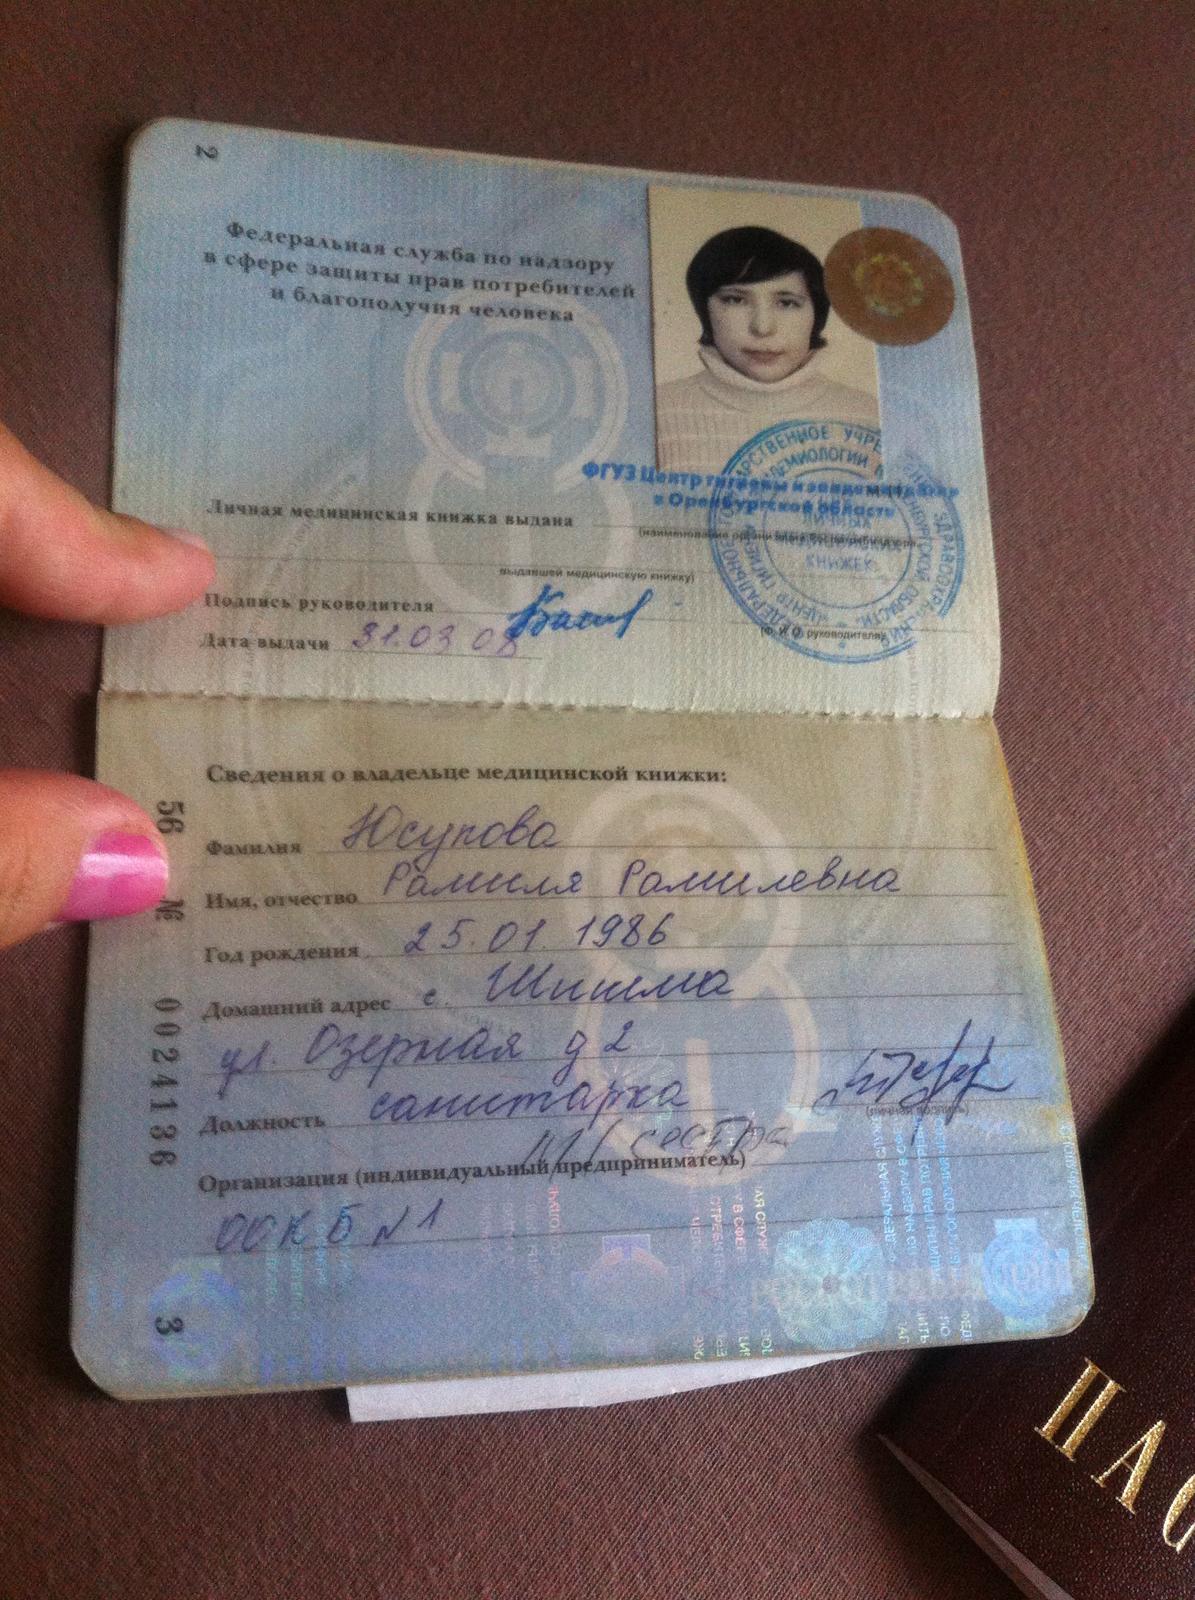 2
Федеральная служба по надзору
в сфере защиты прав потребителей
и благополучия человека
ФГУЗ Центр гигиены и эпидемиологии
в Оренбургской область
Личная медицинская книжка выдана
(наименование организации Роспотребнадзора,
выдавшей медицинскую книжку)
ЛИЧНЫХ
МЕДИЦИНСКИХ
КНИЖЕК
Подпись руководителя
(Ф. И. О. руководителя)
Дата выдачи 31.03 08
Сведения о владельце медицинской книжки:
Фамилия Юсупова
Имя, отчество Рамиля Рамилевна
Год рождения 25.01.1986
Домашний адрес с. Шишма
ул. Озерная д 2
Должность санитарка
м/сестра
Организация (индивидуальный предприниматель)
ООКБ №1
56 № 0024136
3
ПАС